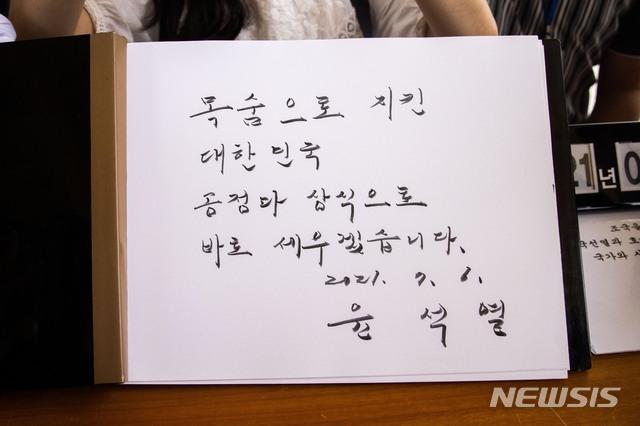 목숨으로 지킨
대한민국
공정과 상식으로
바로 세우겠습니다.
2021. 7. 6.
윤 석 열
21년 0
조국을
국선열과 호
국가와 시
NEWSIS